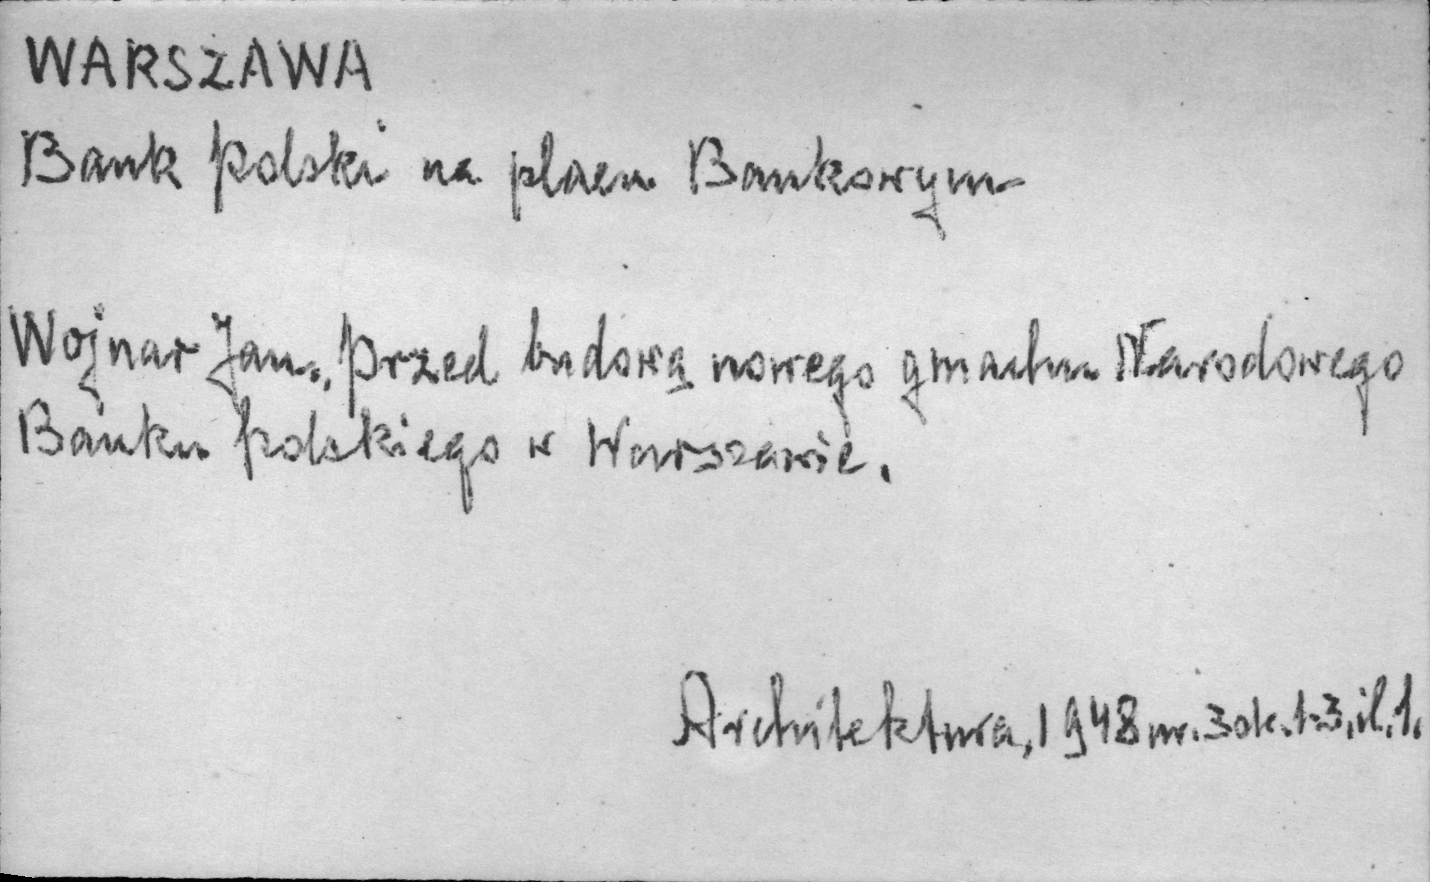 WARSZAWA
Bank Polski na placu Bankowym
Wojnar Jan., Przed budową nowego gmachu Narodowego
Banku Polskiego w Warszawie.
Architektura, 1948 nr. 3 ok. 1-3, il. 1.